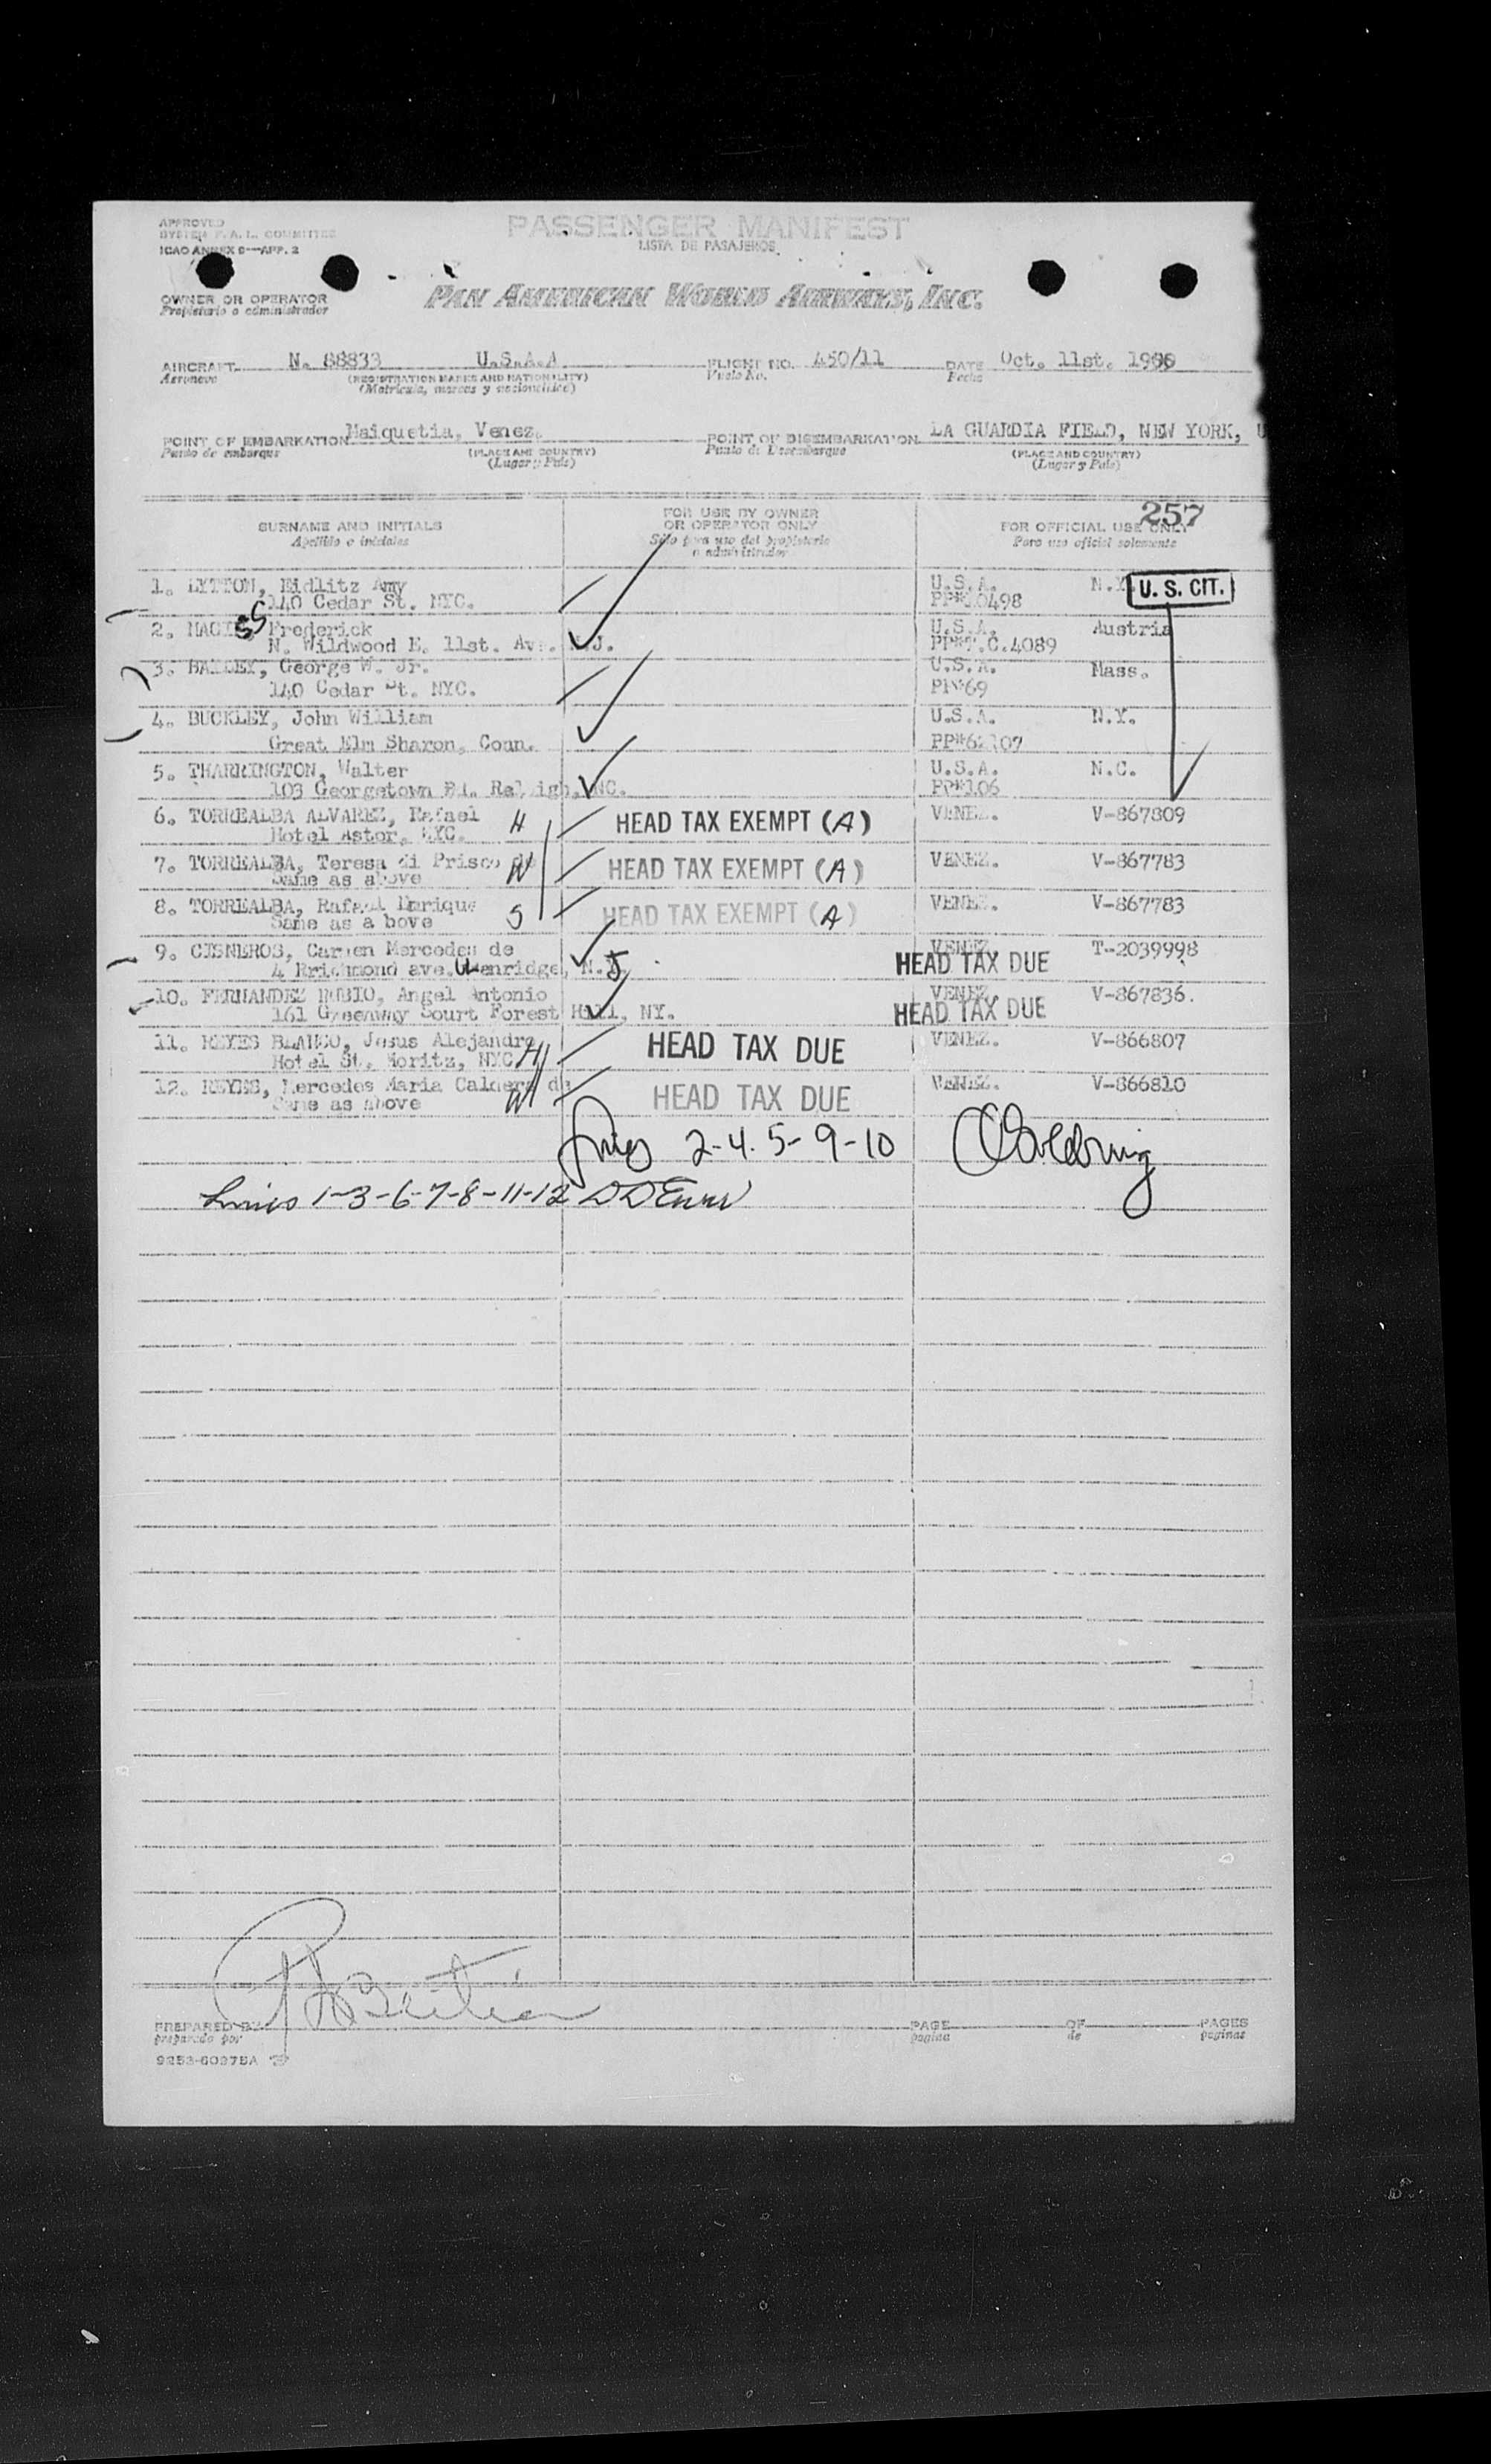 APPROVED
SYSTEM F.A.L. COMMITTEE
ICAO ANNEX 9—APP. 2
PASSENGER MANIFEST
LISTA DE PASAJEROS
OWNER OR OPERATOR
Propietario o administrador
PAN AMERICAN WORLD AIRWAYS, INC.
AIRCRAFT N. 88833 U.S.A.A FLIGHT NO. 450/11 DATE Oct. 11st.
Aeronave (REGISTRATION MARKS AND NATIONALITY) Vuelo No. Fecha
(Matricula, marcas y nacionalidad)
POINT OF EMBARKATION Maiquetia, Venez. POINT OF DISEMBARKATION LA GUARDIA FIELD, NEW YORK, U
Punto de embarque (PLACE AND COUNTRY) Punto de Desembarque (PLACE AND COUNTRY)
(Lugar y País) (Lugar y País)
257
SURNAME AND INITIALS FOR USE BY OWNER OR OPERATOR ONLY FOR OFFICIAL USE ONLY
Apellido e iniciales Sólo para uso del propietario o administrador Para uso oficial solamente
1. LYTTON, Eidlitz Amy U.S.A. N.Y. U. S. CIT.
140 Cedar St. NYC. PP#
2. Frederick U.S.A. Austria
N. Wildwood E. 11st. Ave. N.J. 4089
3. George W. Jr. U.S.A. Mass.
140 Cedar St. NYC. 69
4. BUCKLEY, John William U.S.A. N.Y.
Great Elm Sharon, Conn. PP#
5. THARRINGTON, Walter U.S.A. N.C.
103 Georgetown Rd. Raleigh, NC. PP#106
6. TORREALBA ALVAREZ, Rafael H HEAD TAX EXEMPT (A) VENEZ. V-867809
Hotel Astor, NYC.
7. TORREALBA, Teresa di Prisco de W HEAD TAX EXEMPT (A) VENEZ. V-867783
Same as above
8. TORREALBA, Rafael Enrique S HEAD TAX EXEMPT (A) VENEZ. V-867783
Same as a bove
9. CISNEROS, Carmen Mercedes de VENEZ. T-2039998
4 Rrichmond ave. N.J. HEAD TAX DUE
10. FERNANDEZ RUBIO, Angel Antonio VENEZ. V-867836.
161 Greenway Court Forest Hill, NY. HEAD TAX DUE
11. REYES BLANCO, Jesus Alejandro H HEAD TAX DUE VENEZ. V-866807
Hotel St. Moritz, NYC.
12. REYES, Mercedes Maria Caldera de W HEAD TAX DUE VENEZ. V-866810
Same as above
Lines 2-4. 5-9-10
Lines 1-3-6-7-8-11-12
PREPARED BY PAGE OF PAGES
preparado por pagina de paginas